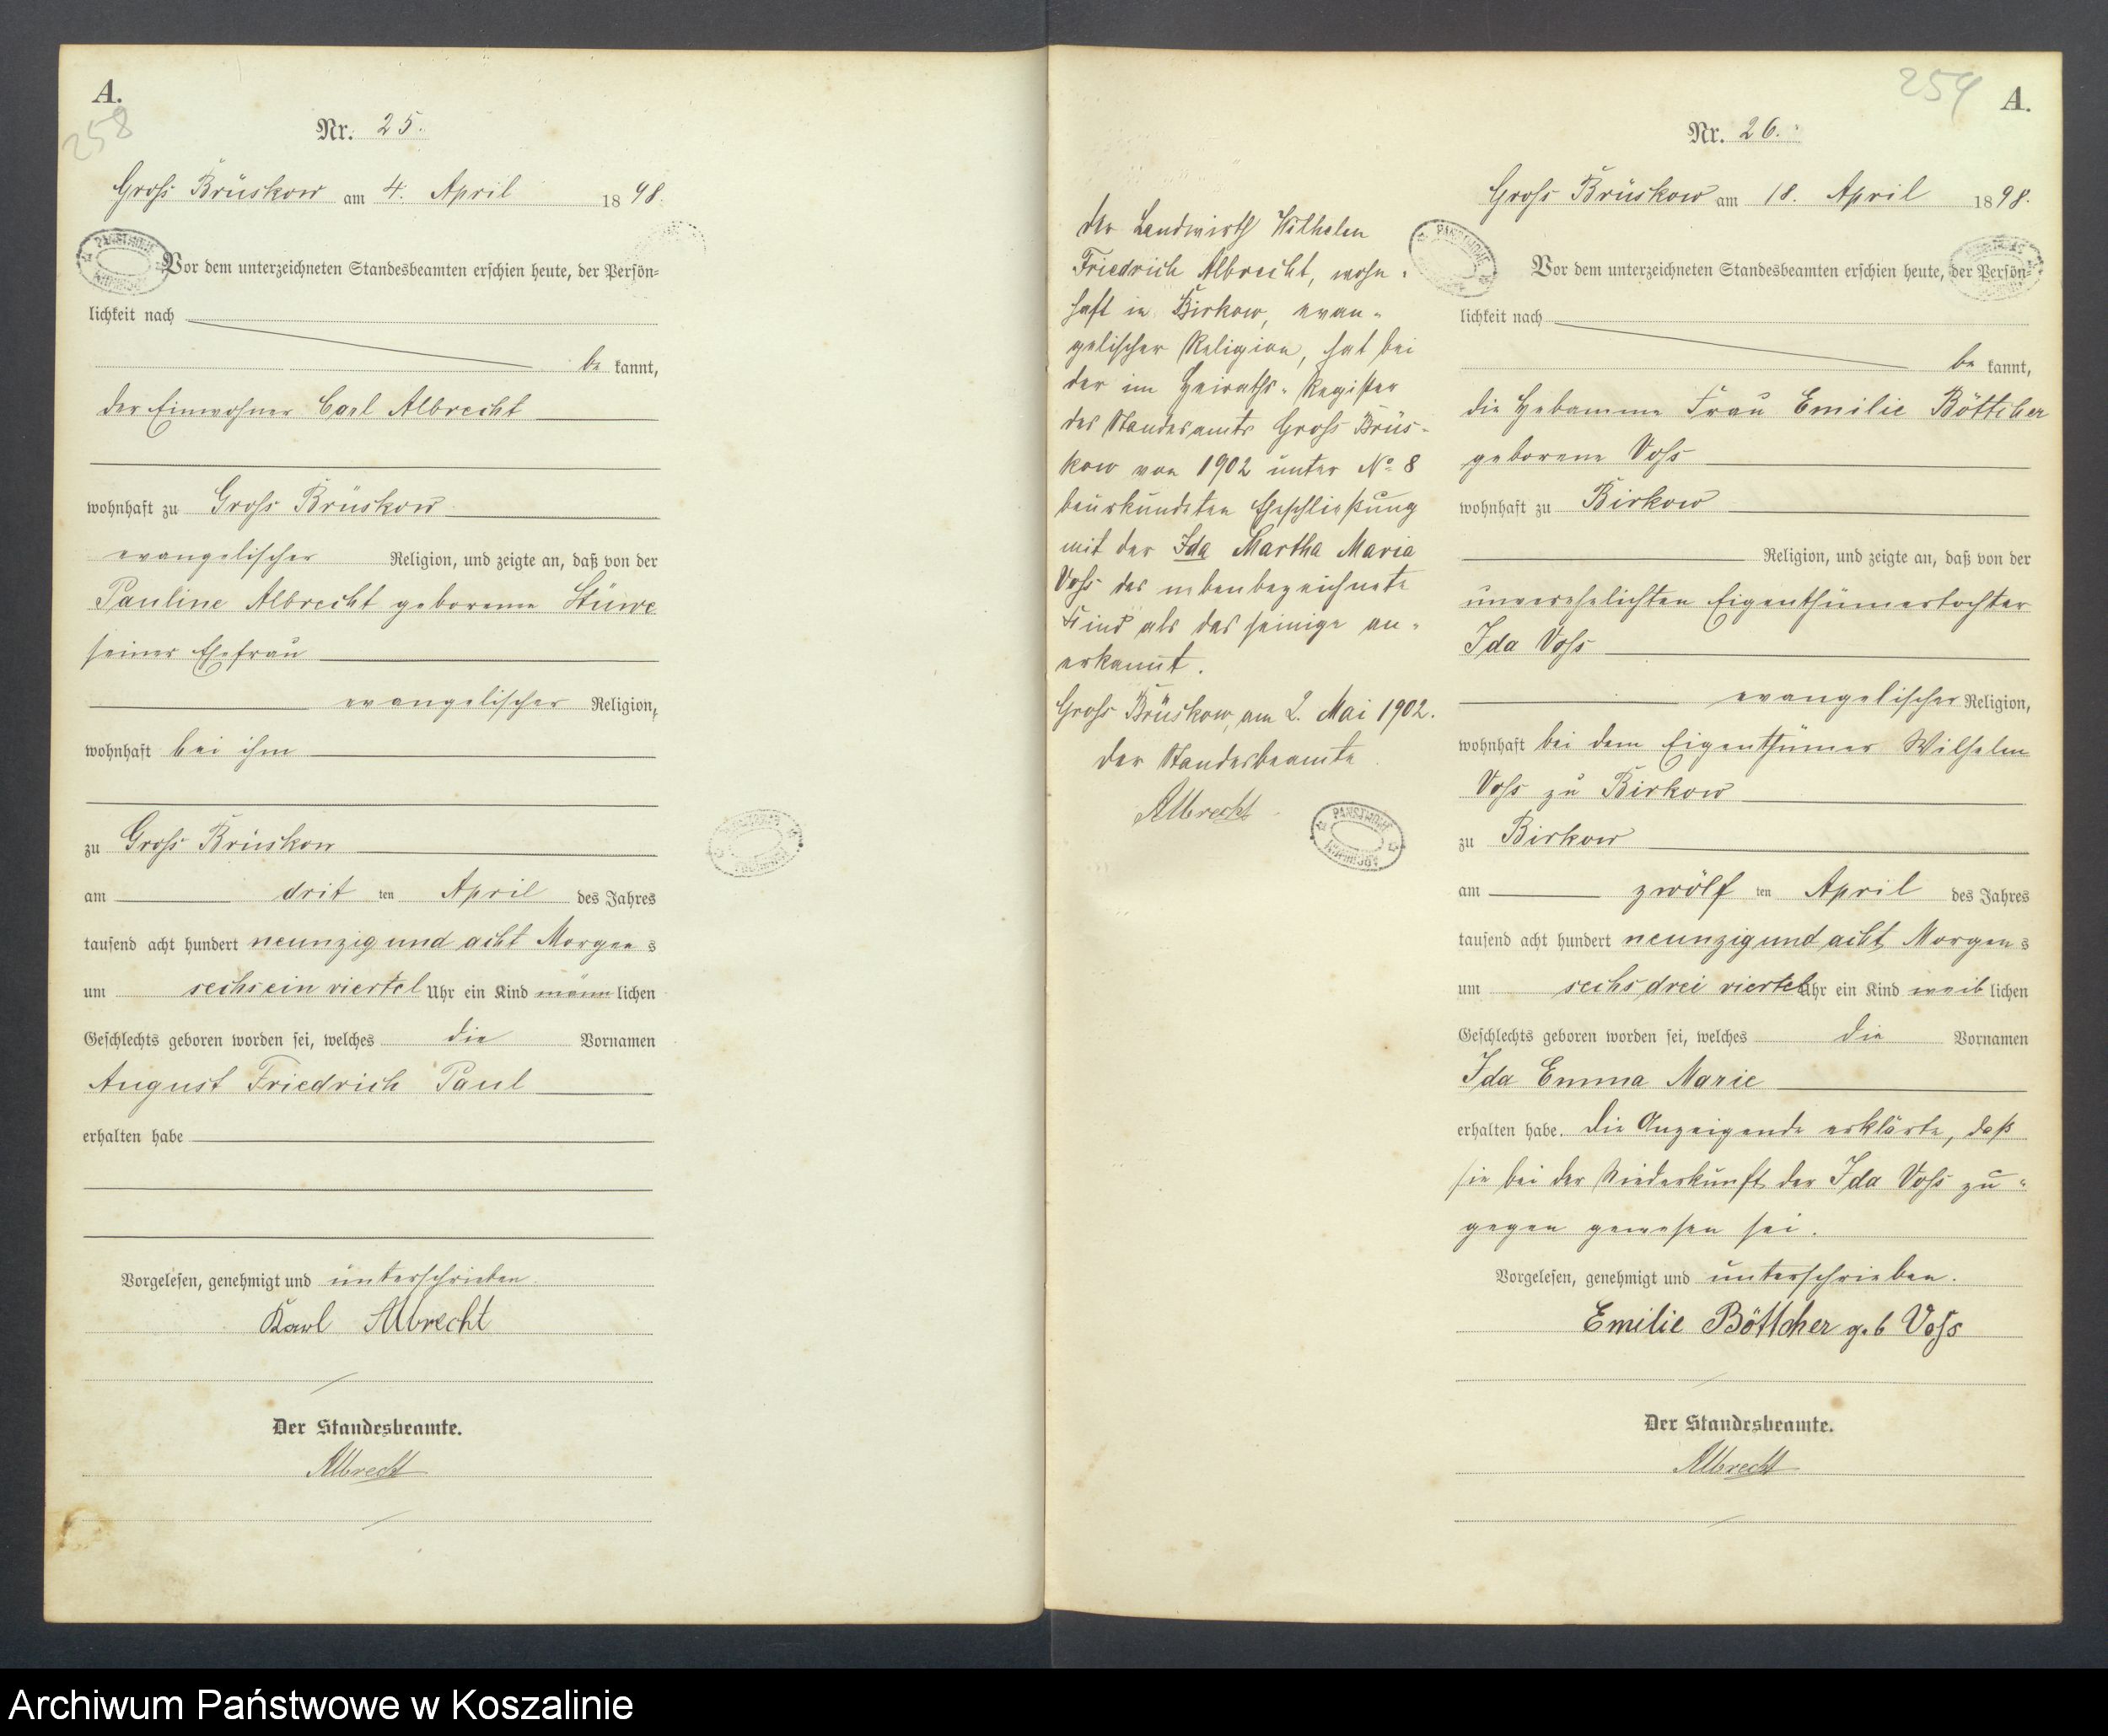 A.
258
Nr. 25.
Gross Brüskow am 4. April 1898.
Vor dem unterzeichneten Standesbeamten erschien heute, der Persön=
lichkeit nach
be kannt,
der Einwohner Carl Albrecht
wohnhaft zu Gross Brüskow
evangelischer Religion, und zeigte an, daß von der
Pauline Albrecht geborene Stüwe
seiner Ehefrau
evangelischer Religion,
wohnhaft bei ihm
zu Gross Brüskow
am drit ten April des Jahres
tausend acht hundert neunzig und acht Morgen s
um sechs ein viertel Uhr ein Kind männ lichen
Geschlechts geboren worden sei, welches die Vornamen
August Friedrich Paul
erhalten habe
Vorgelesen, genehmigt und unterschrieben
Karl Albrecht
Der Standesbeamte.
Albrecht
259 A.
Nr. 26.
Der Landwirth Wilhelm
Friedrich Albrecht, wohn-
haft in Birkow, evan-
gelischer Religion, hat bei
der im Heiraths-Register
des Standesamts Gross Brüs-
kow von 1902 unter No 8
beurkundeten Eheschließung
mit der Ida Martha Maria
Voss das nebenbezeichnete
Kind als das seinige an-
erkannt.
Gross Brüskow, am 2. Mai 1902.
Der Standesbeamte
Albrecht
Gross Brüskow am 18. April 1898.
Vor dem unterzeichneten Standesbeamten erschien heute, der Persön=
lichkeit nach
be kannt,
die Hebamme Frau Emilie Böttcher
geborene Voss
wohnhaft zu Birkow
Religion, und zeigte an, daß von der
unverehelichten Eigenthümertochter
Ida Voss
evangelischer Religion,
wohnhaft bei dem Eigenthümer Wilhelm
Voss zu Birkow
zu Birkow
am zwölf ten April des Jahres
tausend acht hundert neunzig und acht Morgen s
um sechs drei viertel Uhr ein Kind weib lichen
Geschlechts geboren worden sei, welches die Vornamen
Ida Emma Marie
erhalten habe. Die Anzeigende erklärte, daß
sie bei der Niederkunft der Ida Voss zu-
gegen gewesen sei.
Vorgelesen, genehmigt und unterschrieben.
Emilie Böttcher geb Voss
Der Standesbeamte.
Albrecht
Archiwum Państwowe w Koszalinie